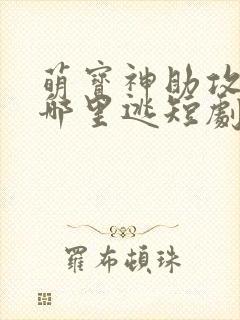 萌寶神助攻
哪里逃短劇
羅布頓珠